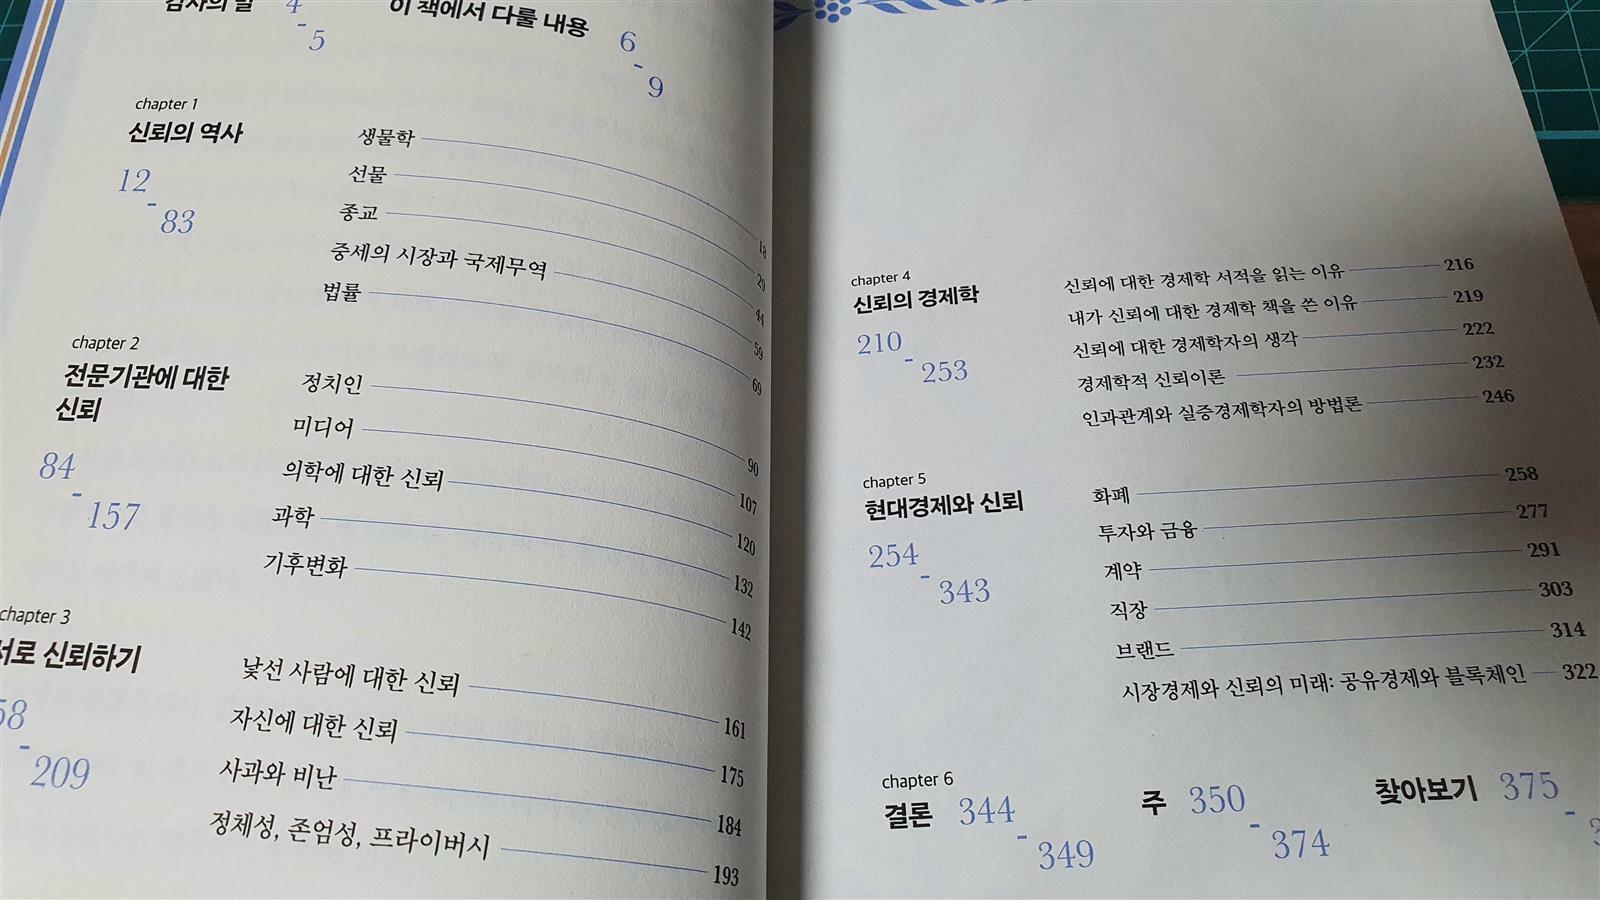 감사의 말 4 - 5
이 책에서 다룰 내용 6 - 9
chapter 1
신뢰의 역사
12 - 83
생물학 18
선물 29
종교 44
중세의 시장과 국제무역 59
법률 69
chapter 2
전문기관에 대한
신뢰
84 - 157
정치인 90
미디어 107
의학에 대한 신뢰 120
과학 132
기후변화 142
chapter 3
서로 신뢰하기
58 - 209
낯선 사람에 대한 신뢰 161
자신에 대한 신뢰 175
사과와 비난 184
정체성, 존엄성, 프라이버시 193
chapter 4
신뢰의 경제학
210 - 253
신뢰에 대한 경제학 서적을 읽는 이유 216
내가 신뢰에 대한 경제학 책을 쓴 이유 219
신뢰에 대한 경제학자의 생각 222
경제학적 신뢰이론 232
인과관계와 실증경제학자의 방법론 246
chapter 5
현대경제와 신뢰
254 - 343
화폐 258
투자와 금융 277
계약 291
직장 303
브랜드 314
시장경제와 신뢰의 미래: 공유경제와 블록체인 322
chapter 6
결론 344 - 349
주 350 - 374
찾아보기 375 -